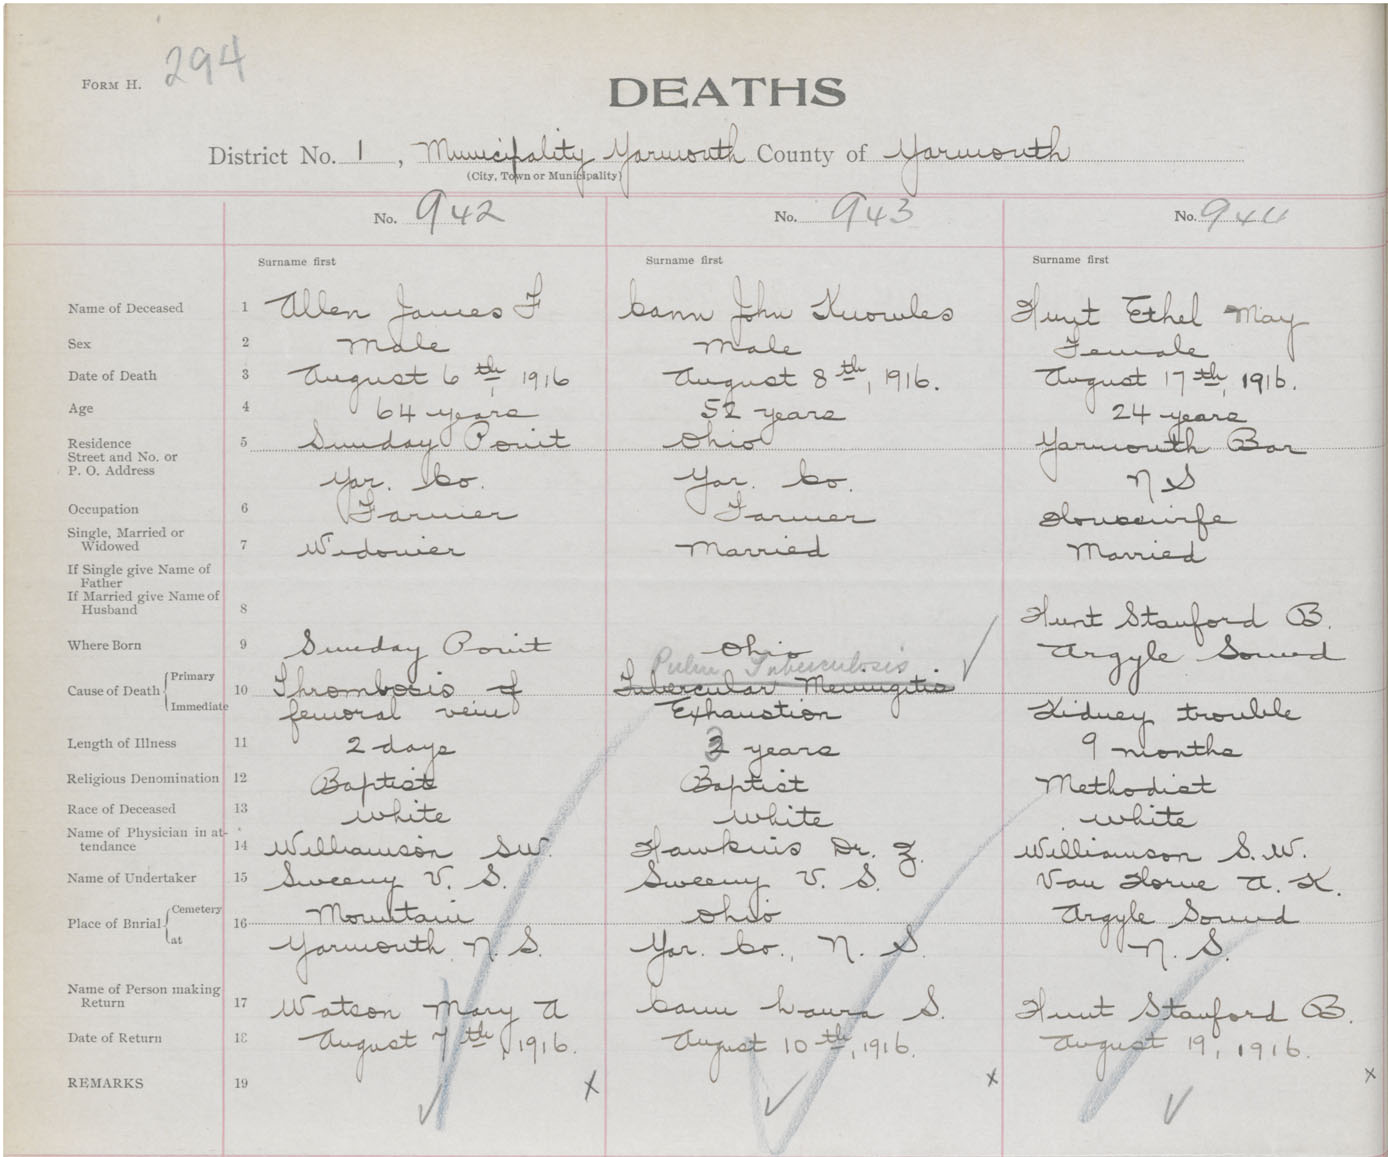 FORM H. 294
DEATHS
District No. 1, Municipality Yarmouth County of Yarmouth
(City, Town or Municipality)
No. 942 No. 943 No. 944
Surname first Surname first Surname first
Name of Deceased 1 Allen James F Cann John Knowles Hunt Ethel May
Sex 2 Male Male Female
Date of Death 3 August 6th, 1916 August 8th, 1916. August 17th, 1916.
Age 4 64 years 52 years 24 years
Residence 5 Sunday Point Ohio Yarmouth Bar
Street and No. or
P. O. Address Yar. Co. Yar. Co. N S
Occupation 6 Farmer Farmer Housewife
Single, Married or
Widowed 7 Widower Married Married
If Single give Name of
Father
If Married give Name of
Husband 8 Hunt Stanford B.
Where Born 9 Sunday Point Ohio Argyle Sound
Pulm Tuberculosis
Cause of Death Primary 10 Thrombosis of Tubercular Meningitis
Immediate femoral vein Exhaustion Kidney trouble
Length of Illness 11 2 days 3 years 9 months
Religious Denomination 12 Baptist Baptist Methodist
Race of Deceased 13 white white white
Name of Physician in at-
tendance 14 Williamson S.W. Hawkins Dr. Z. Williamson S.W.
Name of Undertaker 15 Sweeny V. S. Sweeny V. S. Van Horne A. K.
Place of Burial Cemetery 16 Mountain Ohio Argyle Sound
at Yarmouth N.S. Yar. Co., N. S. N. S.
Name of Person making
Return 17 Watson Mary A Cann Laura S. Hunt Stanford B.
Date of Return 18 August 7th, 1916. August 10th, 1916. August 19, 1916.
REMARKS 19 x x x